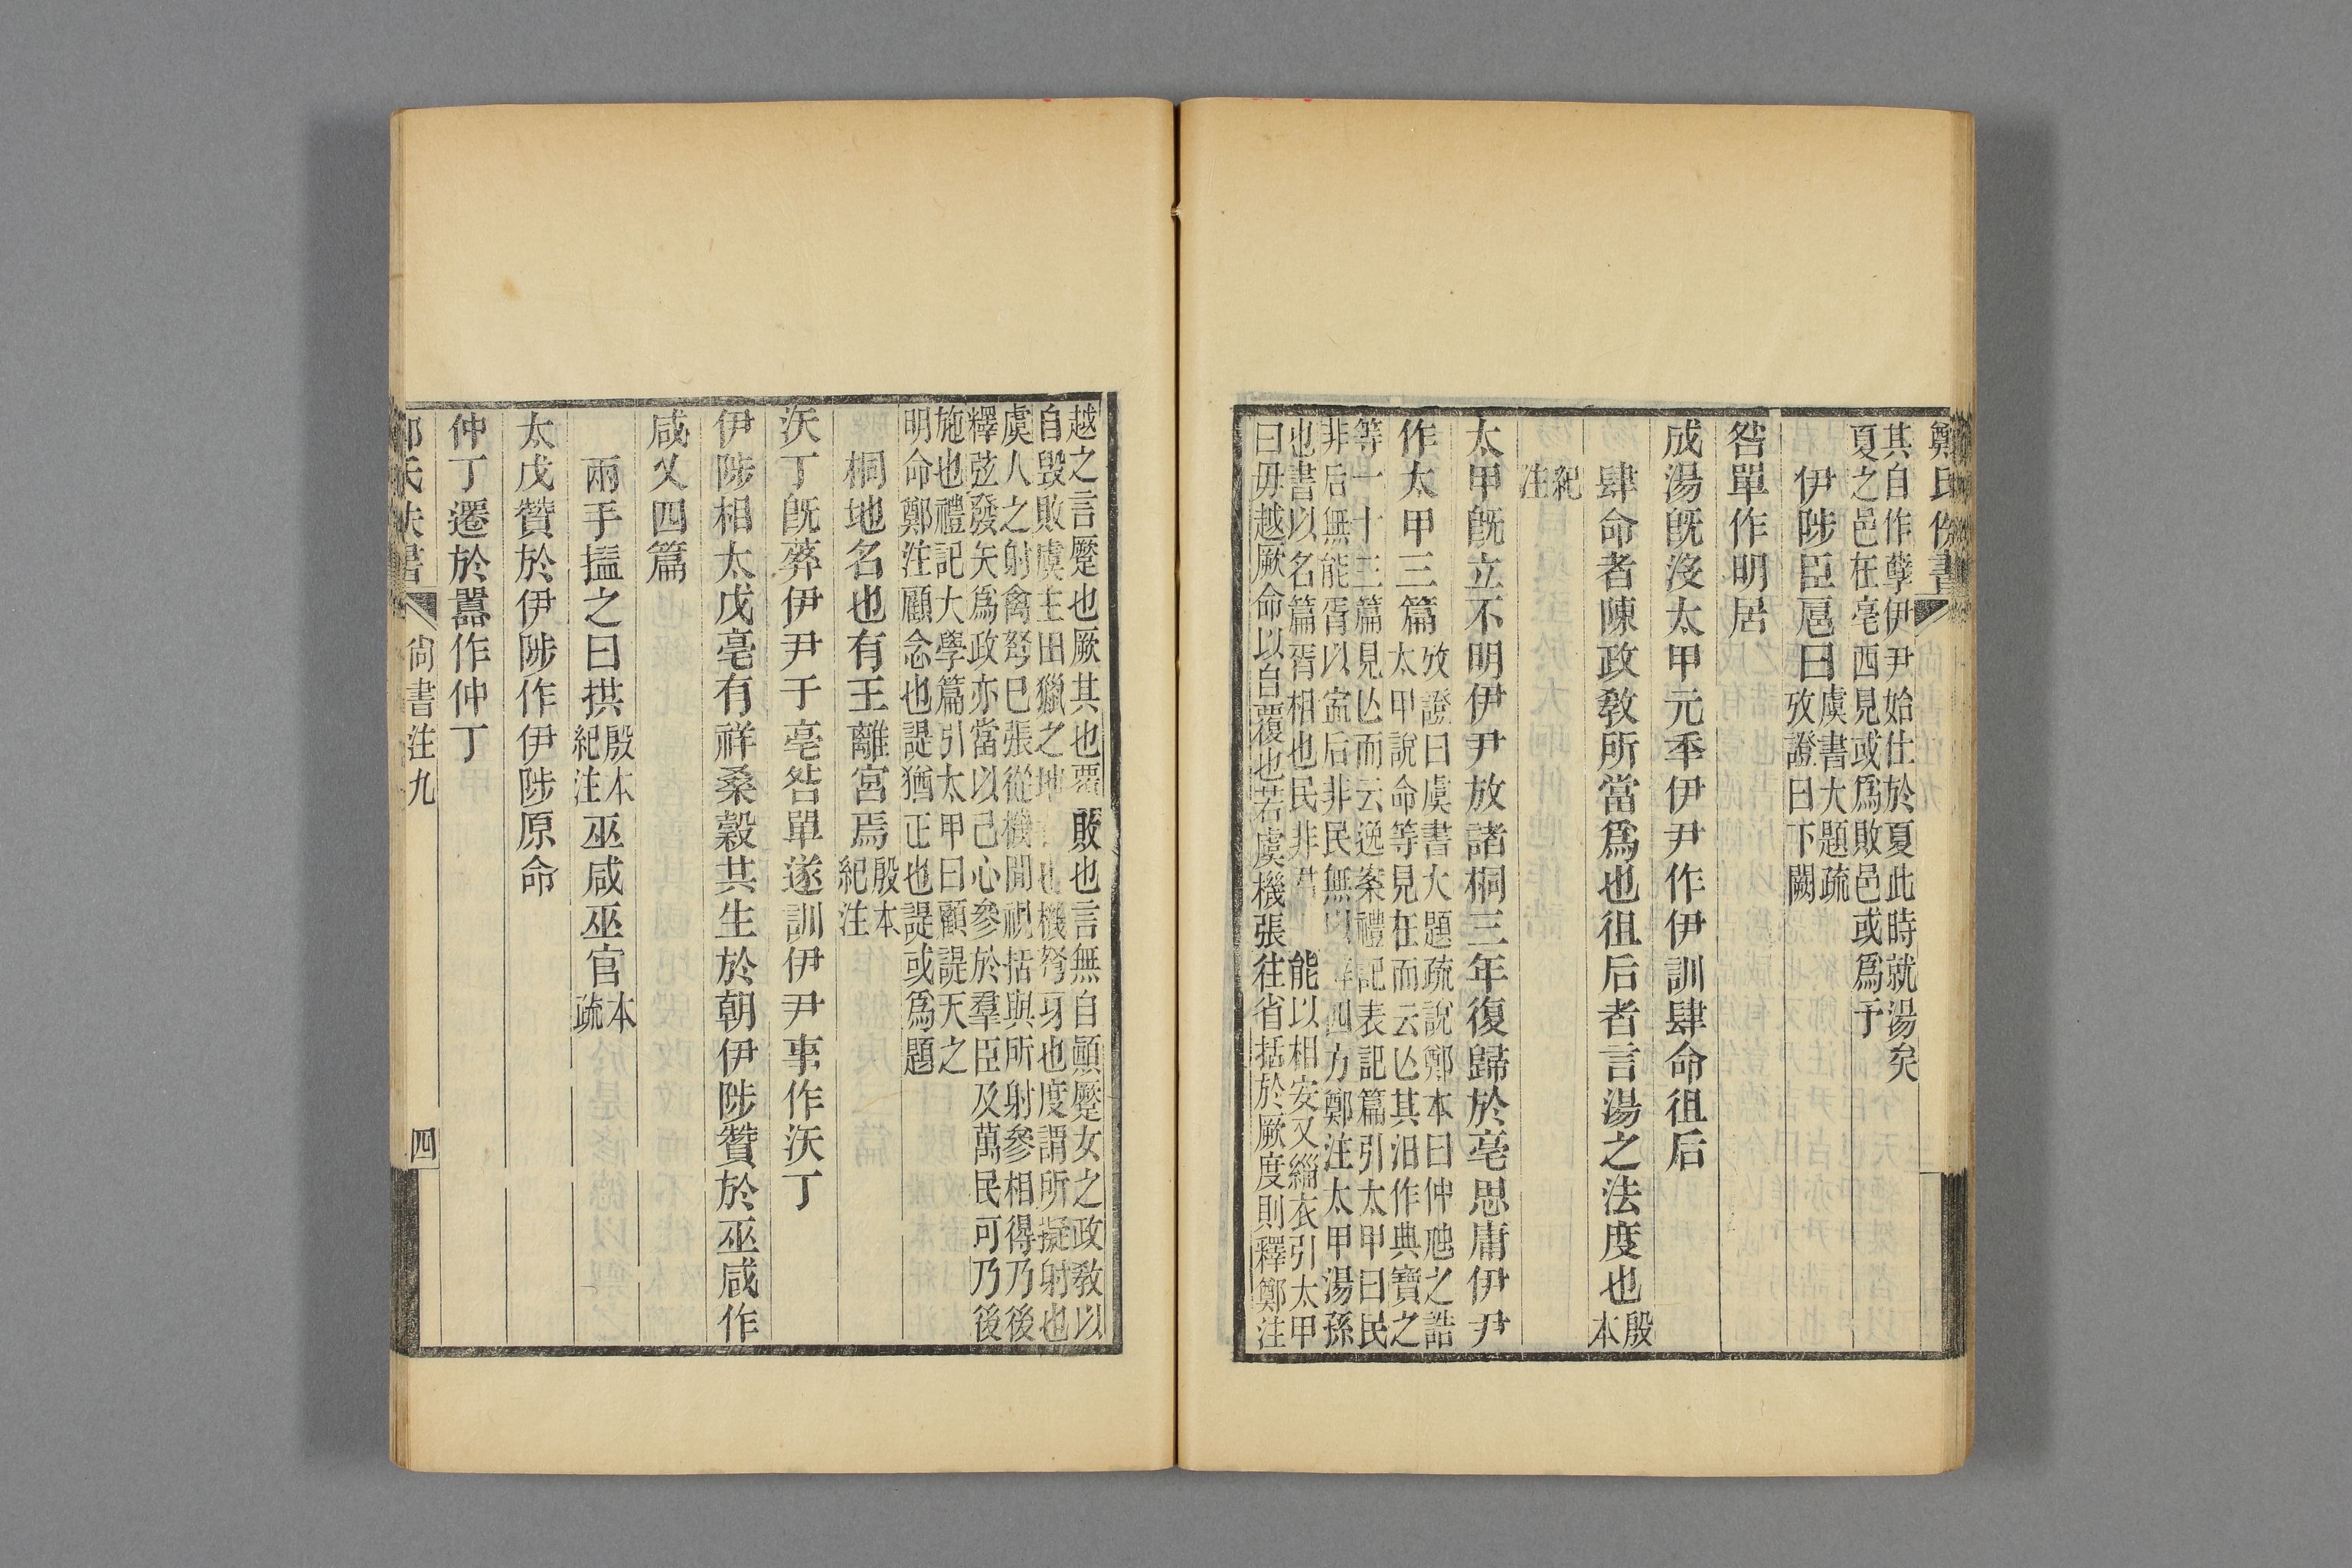 鄭氏佚書
其自作孽伊尹始仕於夏此時就湯矣
夏之邑在亳西見或爲敗邑或爲予
伊陟臣扈曰虞書大題疏
攷證曰下闕
咎單作明居
成湯旣沒太甲元秊伊尹作伊訓肆命徂后
肆命者陳政敎所當爲也徂后者言湯之法度也殷
本
紀
注
太甲旣立不明伊尹放諸桐三年復歸於亳思庸伊尹
作太甲三篇
攷證曰虞書大題疏說鄭本曰仲虺之誥
太甲說命等見在而云亾其汨作典寶之
等一十三篇見亾而云逸案禮記表記篇引太甲曰民
非后無能胥以寍后非民無以辟四方鄭注太甲湯孫
也書以名篇胥相也民非君 能以相安又緇衣引太甲
曰毋越厥命以自覆也若虞機張往省括於厥度則釋鄭注
越之言蹷也厥其也覆敗也言無自顚蹷女之政敎以
自毀敗虞主田獵之地 也機弩牙也度謂所擬射也
虞人之射禽弩已張從機閒視括與所射參相得乃後
釋弦發矢爲政亦當以己心參於羣臣及萬民可乃後
施也禮記大學篇引太甲曰顧諟天之
明命鄭注顧念也諟猶正也諟或爲題
桐地名也有王離宮焉殷本
紀注
沃丁旣葬伊尹于亳咎單遂訓伊尹事作沃丁
伊陟相太戊亳有祥桑穀共生於朝伊陟贊於巫咸作
咸乂四篇
兩手搤之曰拱殷本
紀注巫咸巫官本
疏
太戊贊於伊陟作伊陟原命
仲丁遷於囂作仲丁
鄭氏佚書 尙書注九 四